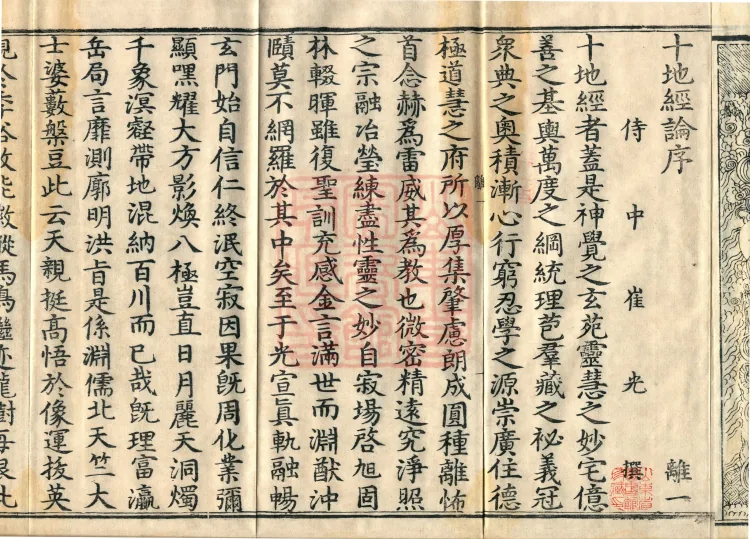 十地經論序 離一
侍中崔光撰
十地經者蓋是神覺之玄苑靈慧之妙宅億
善之基輿萬度之綱統理苞羣藏之祕義冠
衆典之奧積漸心行窮忍學之源崇廣住德
離一
極道慧之府所以厚集肇慮朗成圓種離怖
首念赫為雷威其為教也微密精遠究淨照
之宗融冶瑩練盡性靈之妙自寂場啓旭固
林輟暉雖復聖訓充感金言滿世而淵猷沖
賾莫不網羅於其中矣至于光宣眞軌融暢
玄門始自信仁終泯空寂因果旣周化業彌
顯嘿耀大方影煥八極豈直日月麗天洞燭
千象溟壑帶地混納百川而已哉旣理富瀛
岳局言靡測廓明洪旨是係淵儒北天竺大
士婆藪槃豆此云天親挺高悟於像運拔英
規於季俗故能徽蹤馬鳴繼迹龍樹每恨此